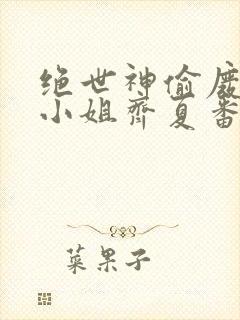 绝世神偷廢
小姐齊夏番
菜果子